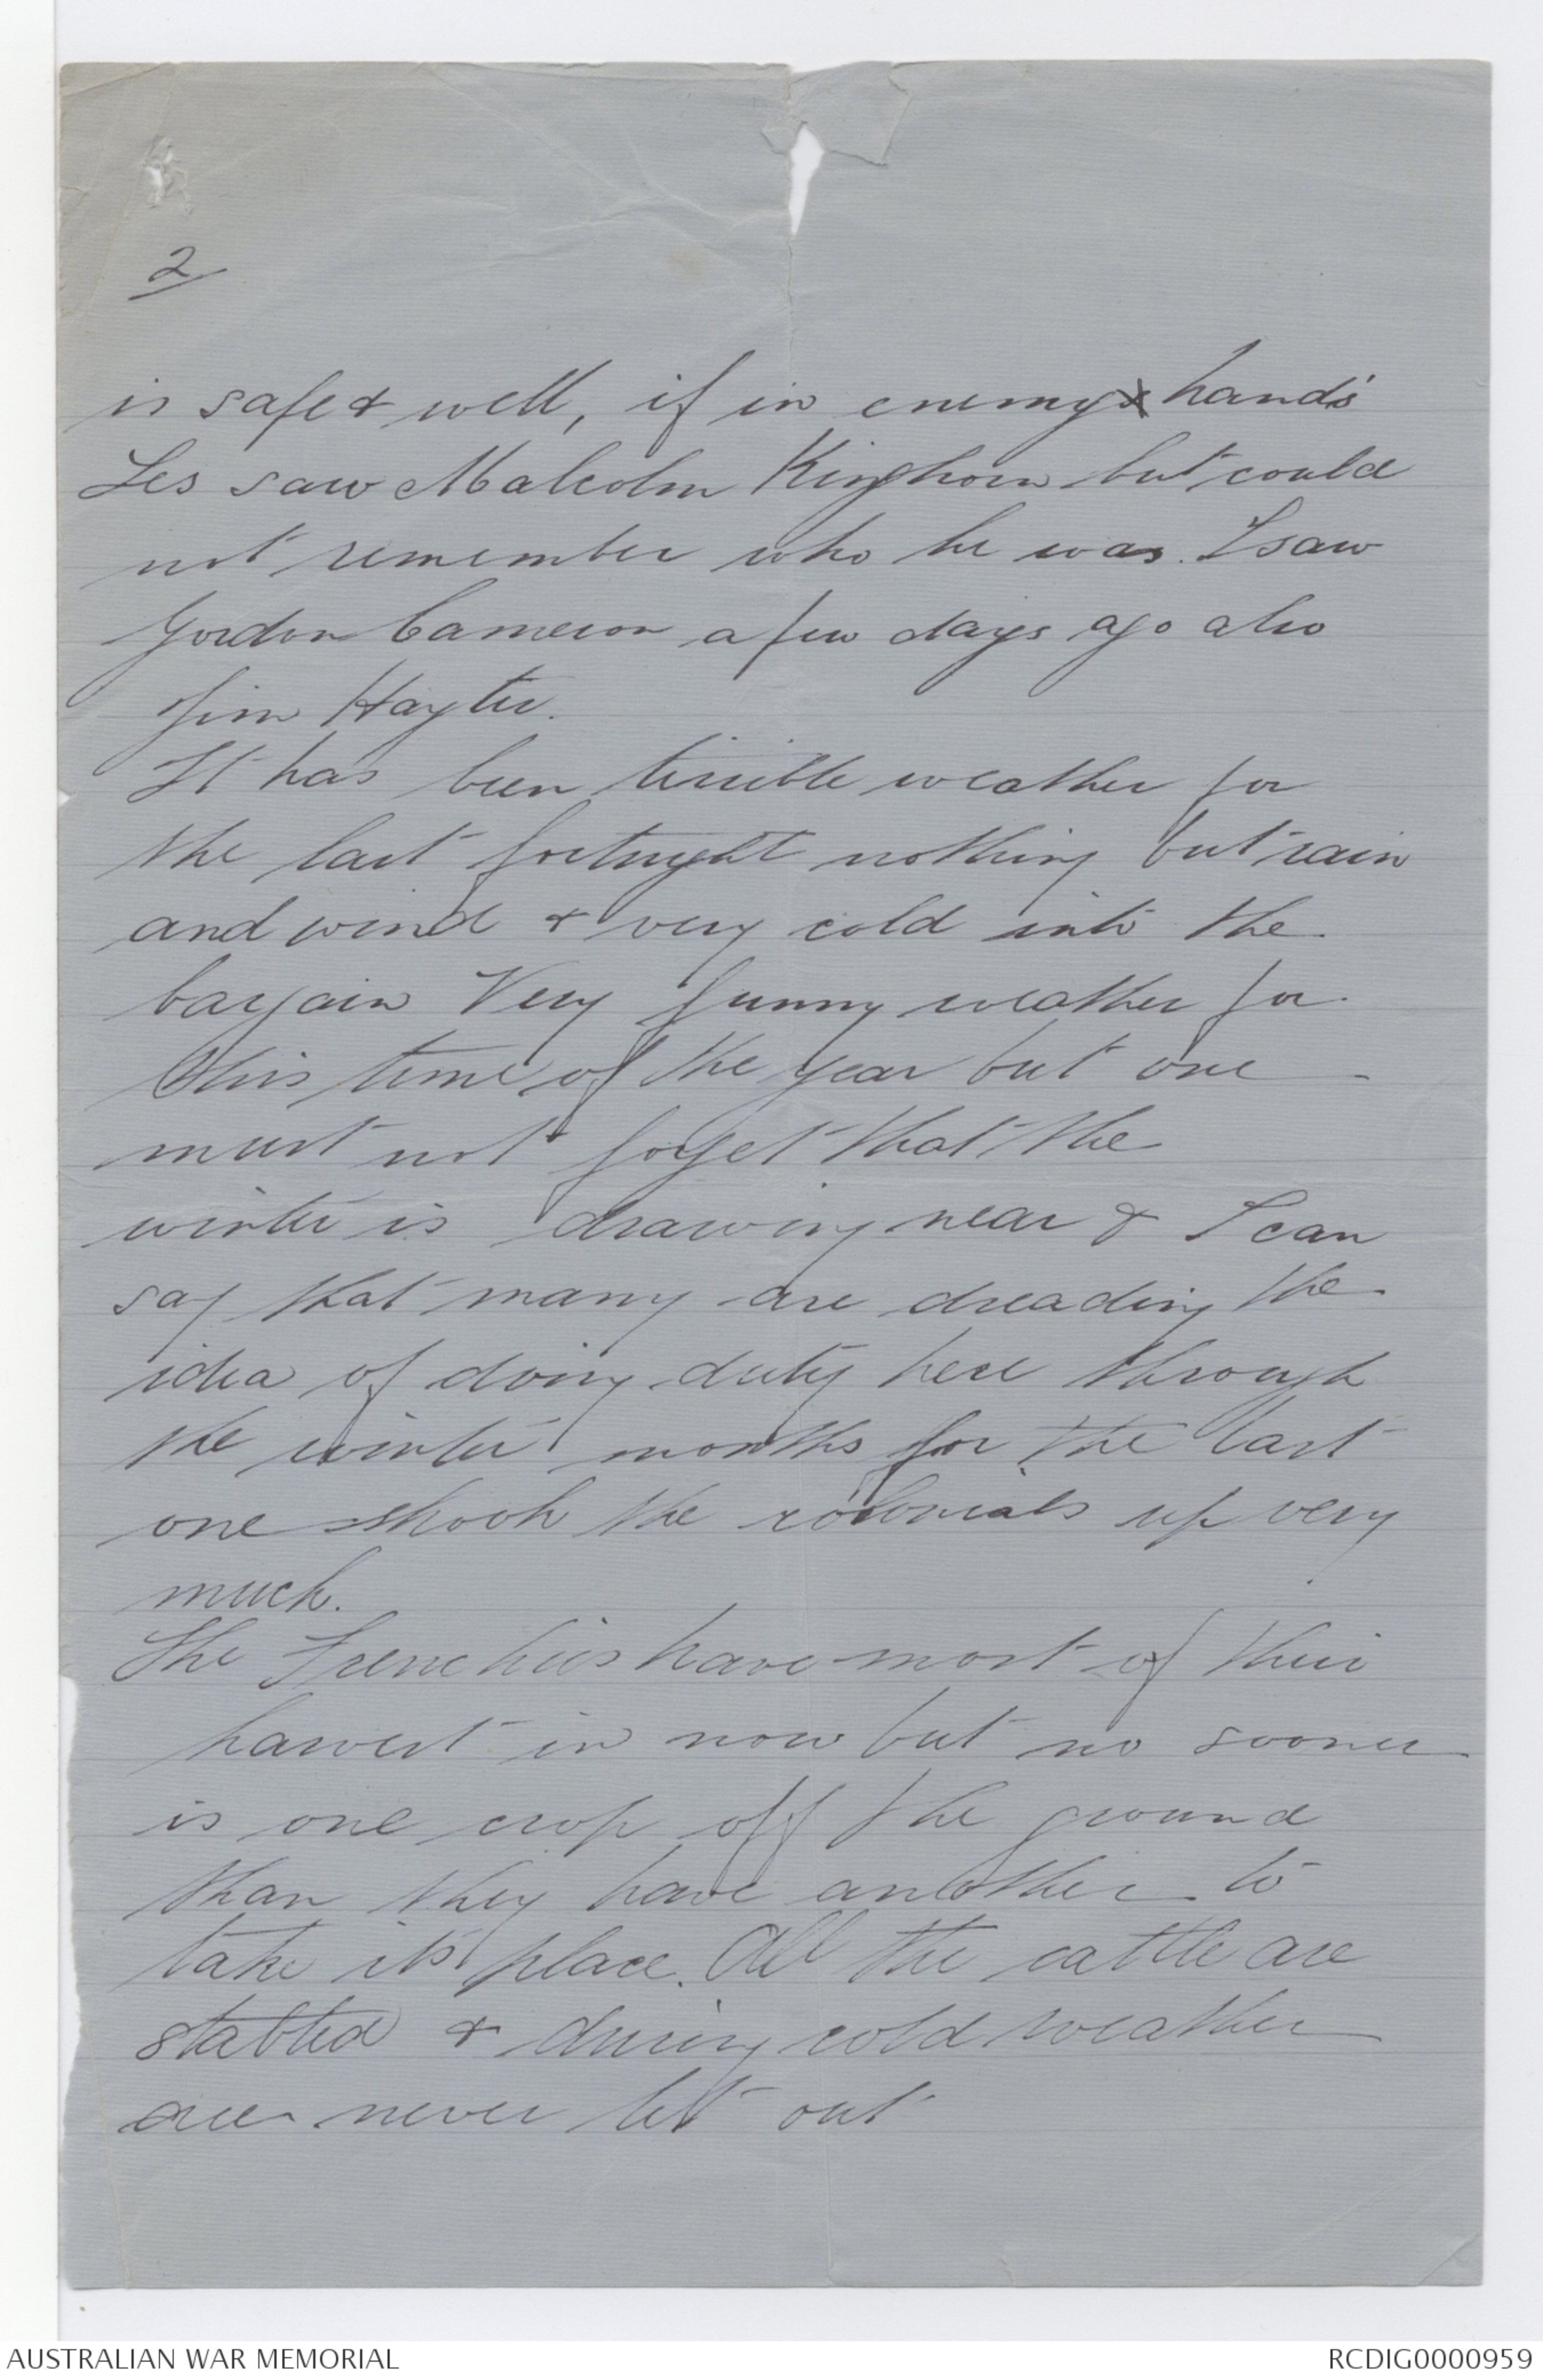 2
is safe & well, if in enemys hands
Les saw Malcolm Kinghorn but could
not remember who he was. I saw
Gordon Cameron a few days ago also
Jim Hayter.
It has been terrible weather for
the last fortnight nothing but rain
and wind & very cold into the
bargain Very funny weather for
this time of the year but one
must not forget that the
winter is drawing near & I can
say that many are dreading the
idea of doing duty here through
the winter months for the last
one shook the colonials up very
much.
The Frenchies have most of their
harvest in now but no sooner
is one crop off the ground
than they have another to
take its place. All the cattle are
stabled & during cold weather
are never let out
AUSTRALIAN WAR MEMORIAL
RCDIG0000959